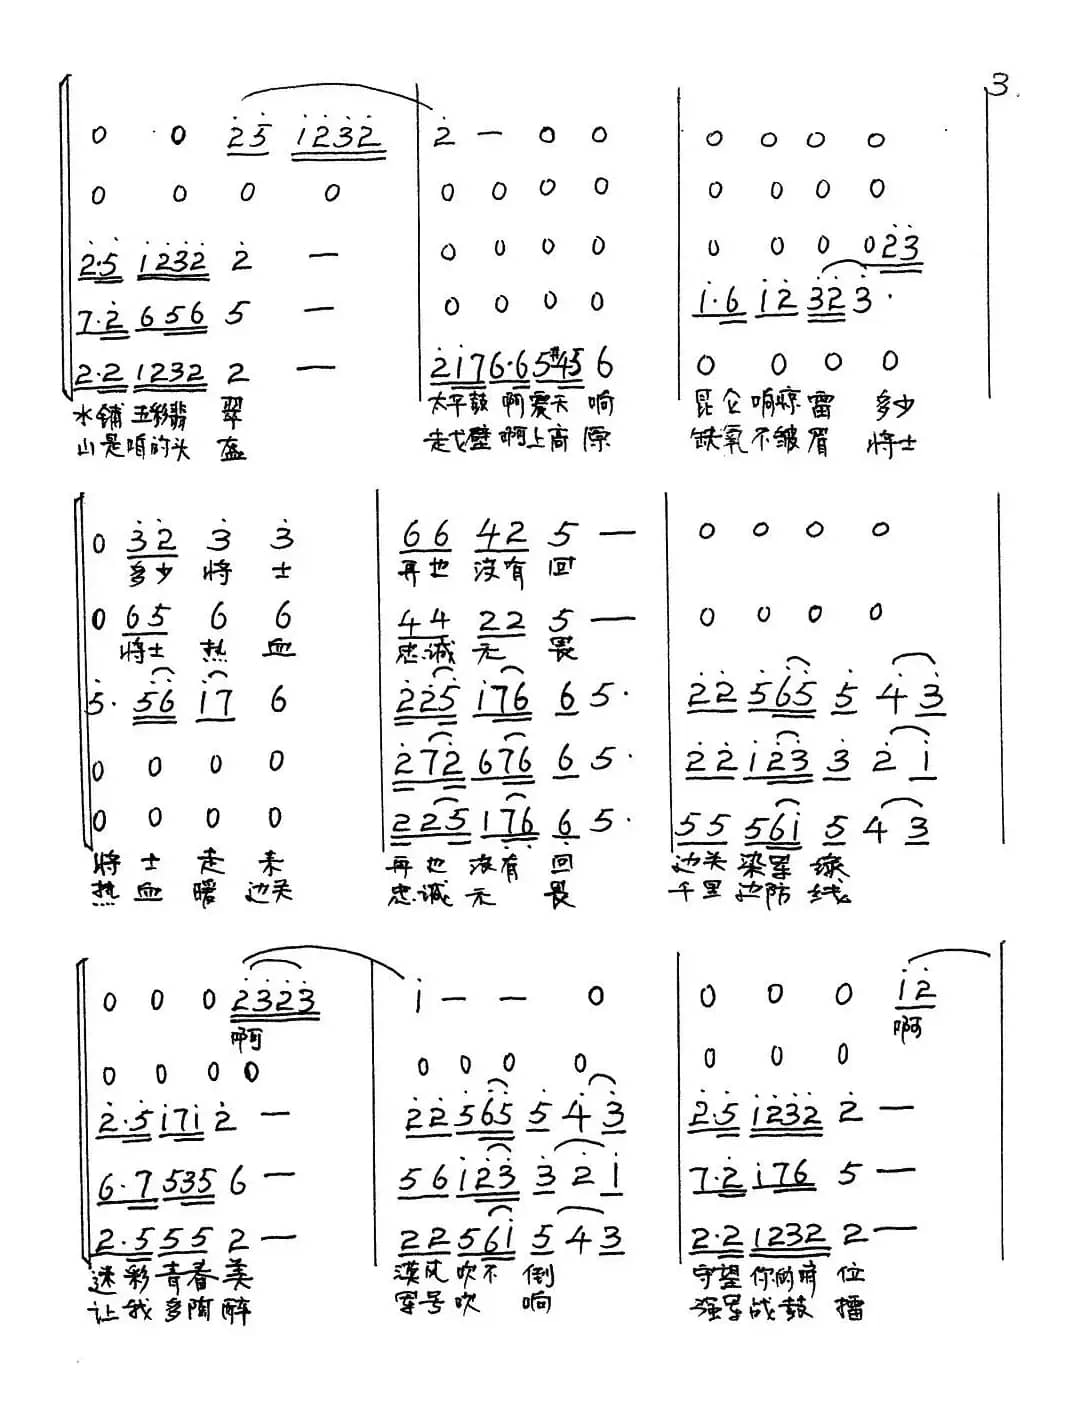 3.
0 0 25 1232 2 — 0 0 0 0 0 0
0 0 0 0 0 0 0 0 0 0 0 0
2·5 1232 2 — 0 0 0 0 0 0 0 0 23
7·2 656 5 — 0 0 0 0 1·6 12 32 3·
2·2 1232 2 — 2176·65#45 6 0 0 0 0
水铺五彩翡 翠 太平鼓 啊震天 响 昆仑响惊雷 多少
山是咱的头 盔 走戈壁啊上高 原 缺氧不皱眉 将士
0 32 3 3 66 42 5 — 0 0 0 0
多少 将 士 再也 没有 回
0 65 6 6 44 22 5 — 0 0 0 0
将士 热 血 忠诚 无 畏
5· 56 17 6 225 176 6 5· 22 565 5 4 3
0 0 0 0 272 676 6 5· 22 123 3 2 1
0 0 0 0 225 176 6 5· 55 561 5 4 3
将 士 走 来 再 也 没有 回 边关 染军 绿
热 血 暖 边关 忠诚 无 畏 千里边防 线
0 0 0 2323 1 — — 0 0 0 0 12
啊 啊
0 0 0 0 0 0 0 0 0 0 0
2·5 171 2 — 22 565 5 4 3 2·5 1232 2 —
6·7 535 6 — 56 123 3 2 1 7·2 176 5 —
2·5 55 2 — 22 561 5 4 3 2·2 1232 2 —
迷彩青春美 漠风吹不 倒 守望你的 位
让我多陶醉 军号吹 响 强军战鼓 擂